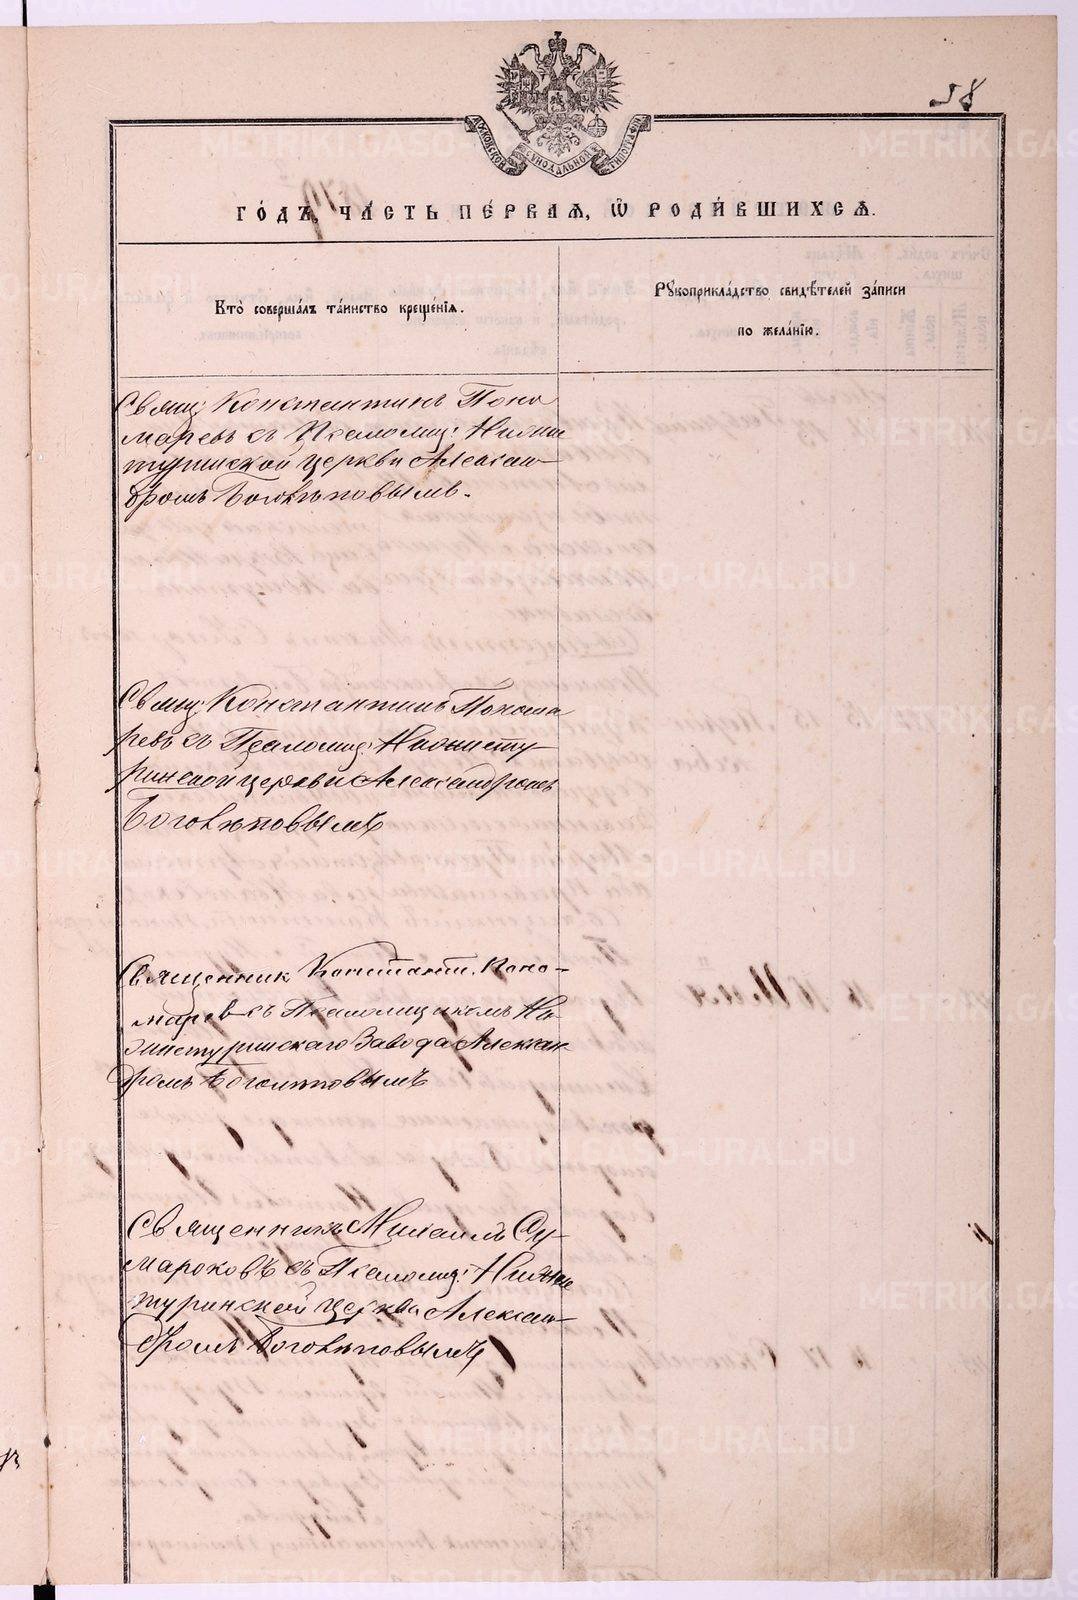 58
МОСКОВСКОЙ СѴНОДАЛЬНОЙ ТИПОГРАФІИ
ГО́ДЪ, ЧА́СТЬ ПЕ́РВАЯ, Ѽ РОДИ́ВШИХСЯ.
Кто̀ соверша́лъ та́инство креще́нія.
Рꙋкоприкла́дство свидѣ́телей за́писи
по жела́нію.
Свящ: Константинъ Поно
маревъ съ Псаломщ: Нижне
туринской церкви Алексан
дромъ Боголѣповымъ.
Свящ: Константинъ Понома
ревъ съ Псаломщ: Нижнету
ринской церкви Александромъ
Боголѣповымъ
Священник Константи. Поно-
марев съ Псаломщикомъ Ни
жнетуринскаго Завода Алексан
дромъ Боголѣповымъ
Священникъ Михаилъ Су-
мароковъ съ Псаломщ: Нижне
туринской церкви Алексан
дромъ Боголѣповымъ
METRIKI.GASO-URAL.RU